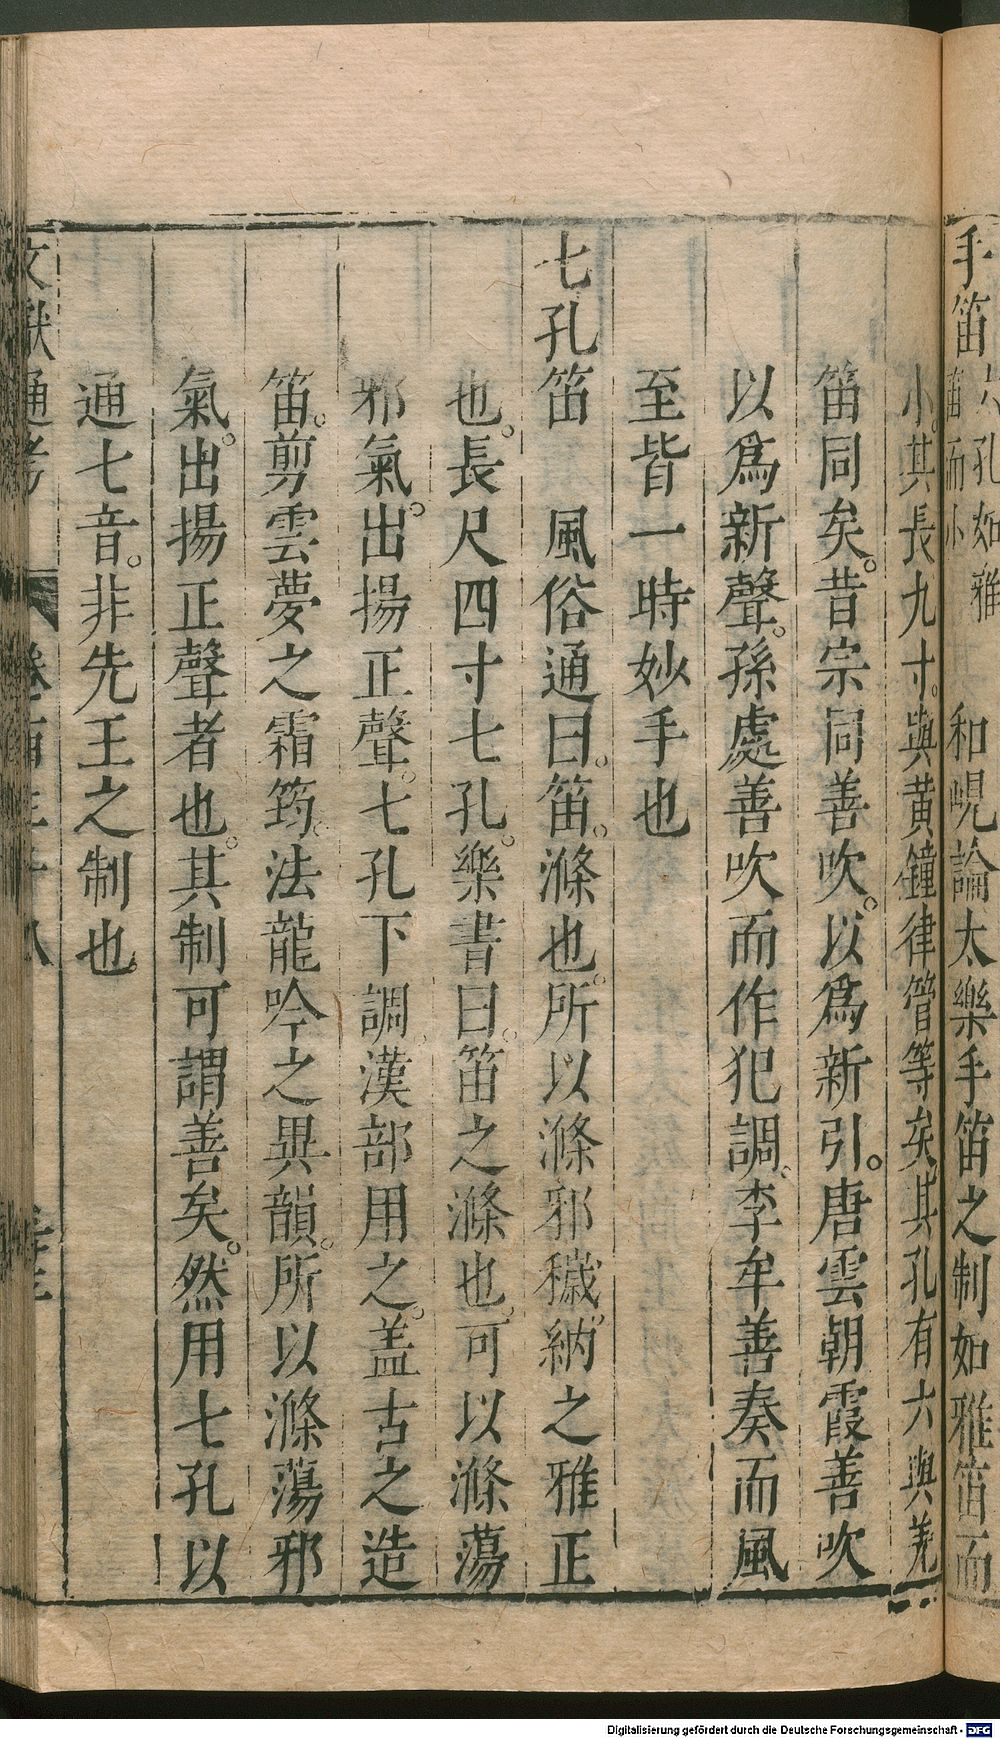 手笛六孔如雅笛而小　和峴論太樂手笛之制如雅笛而
小。其長九寸。與黃鐘律管等矣其孔有六與羌
笛同矣。昔宗同善吹。以爲新引。唐雲朝霞善吹
以爲新聲。孫處善吹而作犯調。李牟善奏而風
至皆一時妙手也
七孔笛　風俗通曰。笛。滌也。所以滌邪穢。納之雅正
也。長尺四寸七孔。樂書曰。笛之滌也。可以滌蕩
邪氣。出揚正聲。七孔下調。漢部用之。盖古之造
笛。剪雲夢之霜筠。法龍吟之異韻。所以滌蕩邪
氣。出揚正聲者也。其制可謂善矣。然用七孔以
通七音。非先王之制也。
文獻通考　卷一百三十八
Digitalisierung gefördert durch die Deutsche Forschungsgemeinschaft - DFG